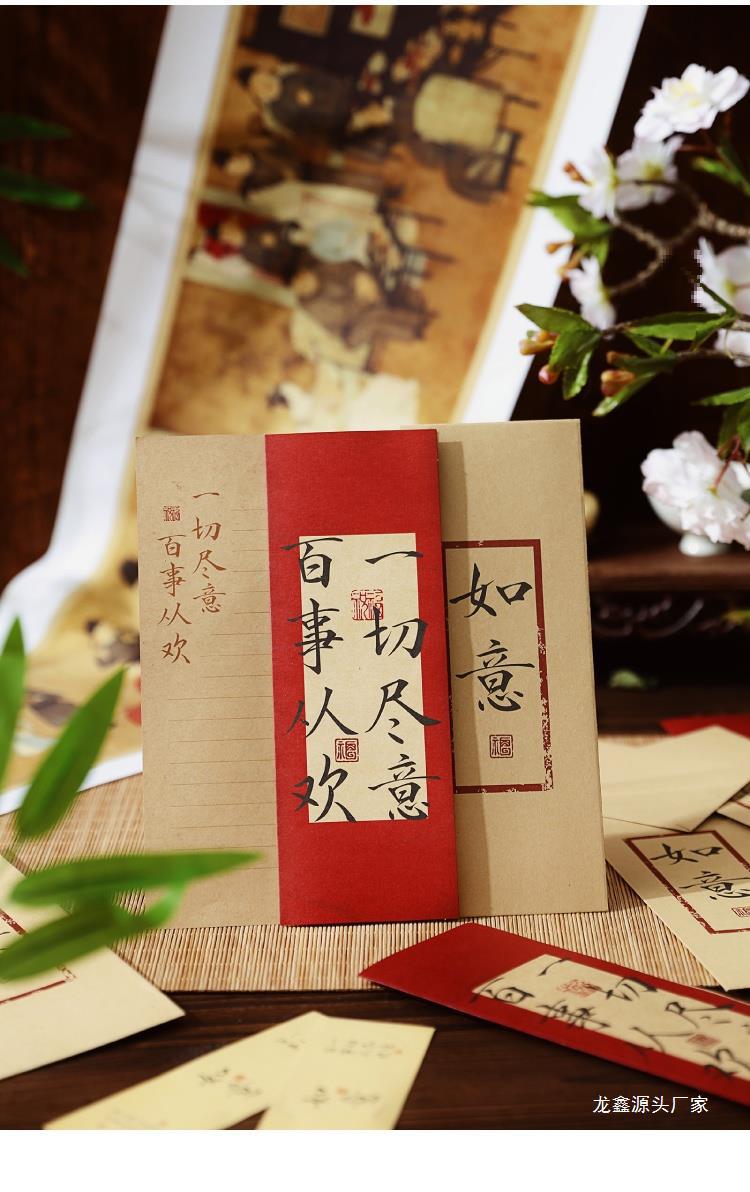 一切尽意
百事从欢
一切尽意
百事从欢
如意
如意
龙鑫源头厂家